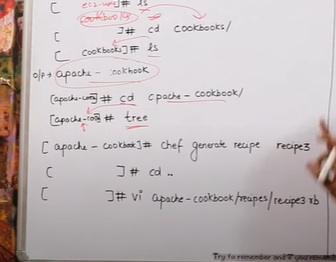 [ ec2-user]# ls
cookbooks
[ ]# cd cookbooks/
[ cookbooks]# ls
o/p → apache-cookbook
[apache-coo]# cd apache-cookbook/
[apache-coo]# tree
[ apache-cookbook]# chef generate recipe recipe3
[ ]# cd ..
[ ]# vi apache-cookbook/recipes/recipe3.rb
Try to remember and